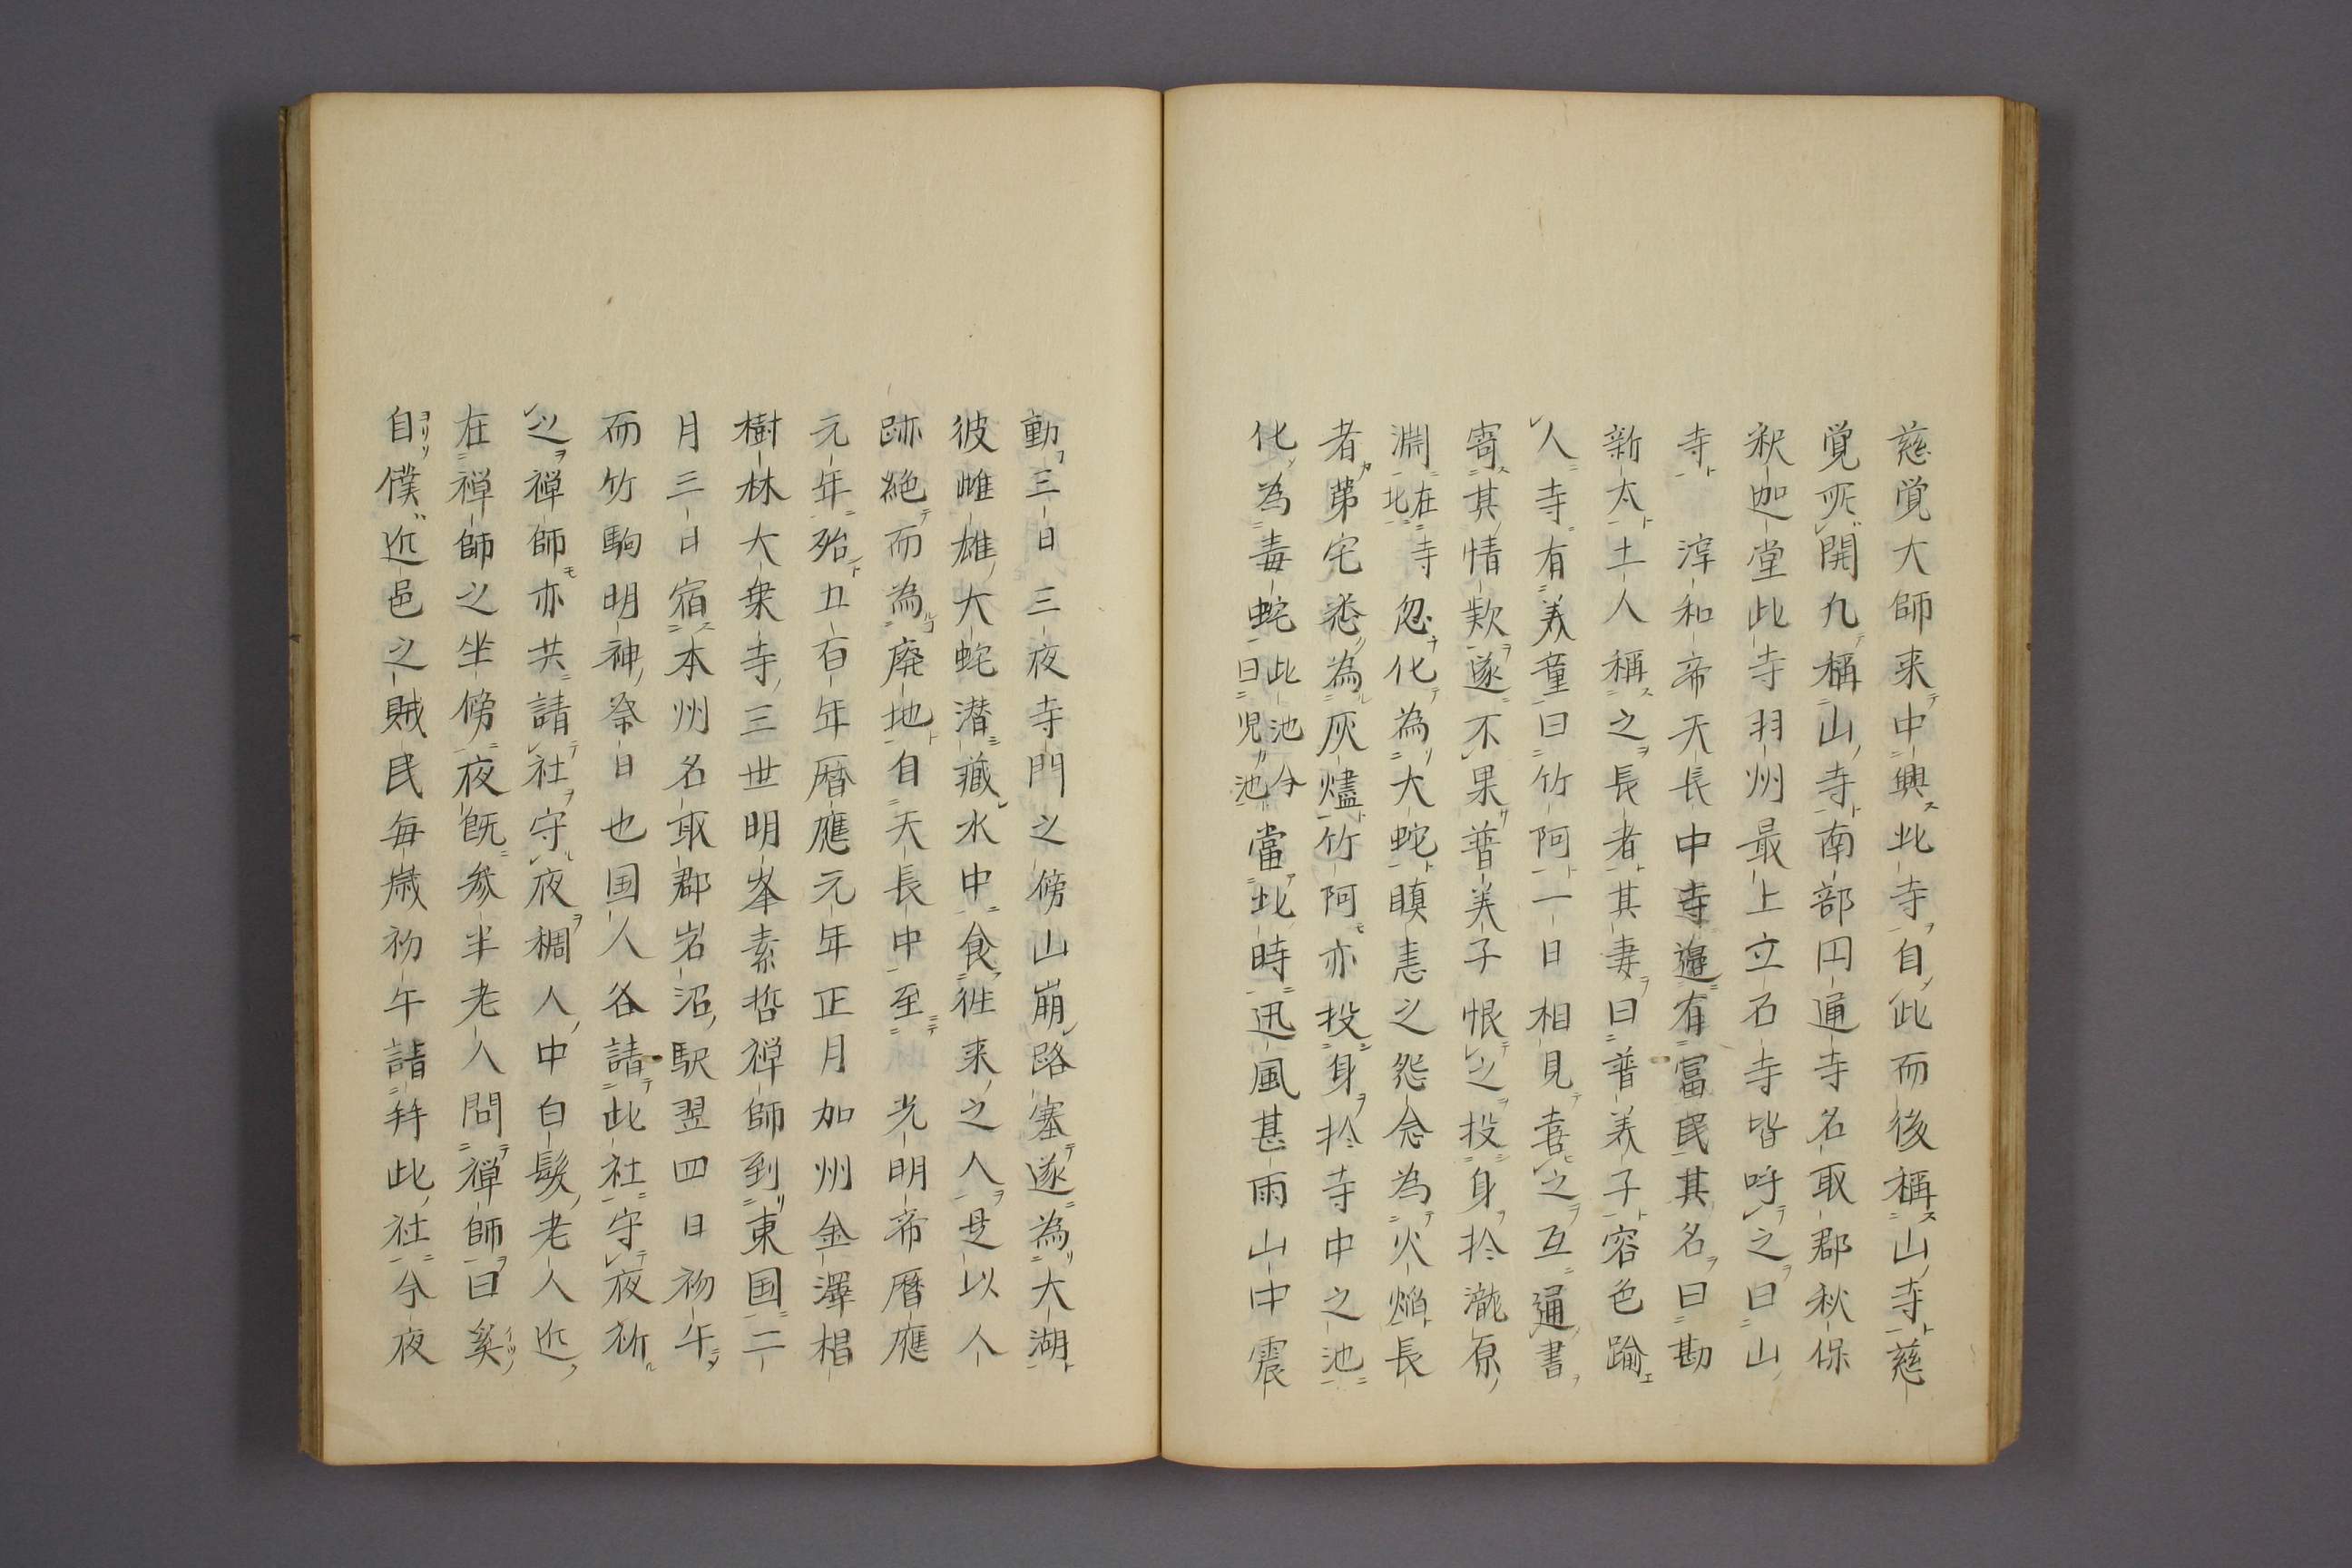 慈覚大師来中興此寺自此而後稱山寺慈
覚所開凡稱山寺南部円通寺名取郡秋保
釈迦堂此寺羽州最上立石寺皆呼之曰山
寺 淳和帝天長中寺邉有冨民其名曰勘
新太土人稱之長者其妻曰普美子容色踰
人寺有美童曰竹阿一日相見喜之互通書
寄其情欵遂不果普美子恨之投身扵瀧原
淵在寺北忽化為大蛇瞋恚之怨念為火焔長
者苐宅悉為灰燼竹阿亦投身扵寺中之池
化為毒蛇此池今曰児池當此時迅風甚雨山中震
動三日三夜寺門之傍山崩路塞遂為大湖
彼雌雄大蛇潜藏水中食往来之人是以人
跡絶而為廃地自天長中至 光明帝暦應
元年殆五百年暦應元年正月加州金澤椙
樹林大乗寺三世明峯素哲禅師到東国二
月三日宿本州名取郡岩沼駅翌四日初午
而竹駒明神祭日也国人各請此社守夜祈
之禅師亦共請社守夜稠人中白髮老人近
在禅師之坐傍夜既參半老人問禅師曰奚
自僕近邑之賊民毎歳初午詣拜此社今夜